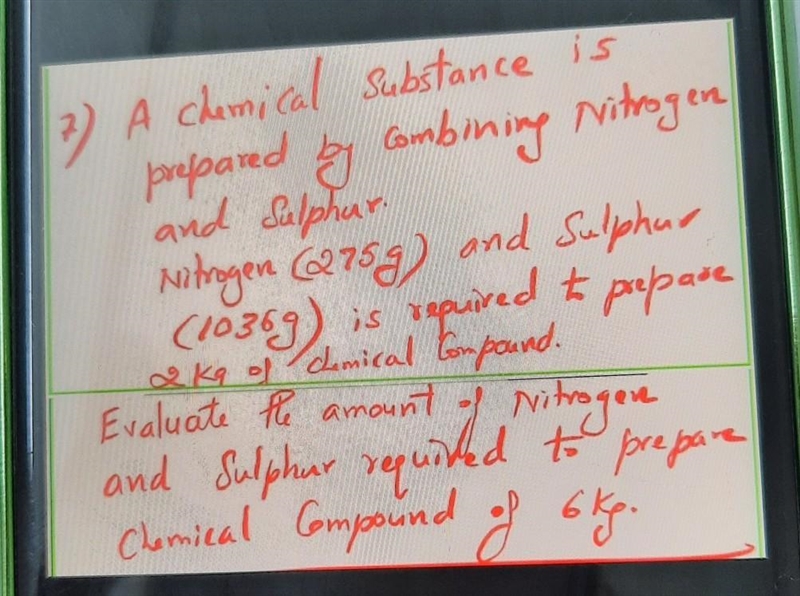 7) A chemical Substance is
prepared by Combining Nitrogen
and Sulphur.
Nitrogen (275g) and Sulphur
(1036g) is required to prepare
2 Kg of Chemical Compound.
Evaluate the amount of Nitrogen
and Sulphur required to prepare
Chemical Compound of 6 Kg.